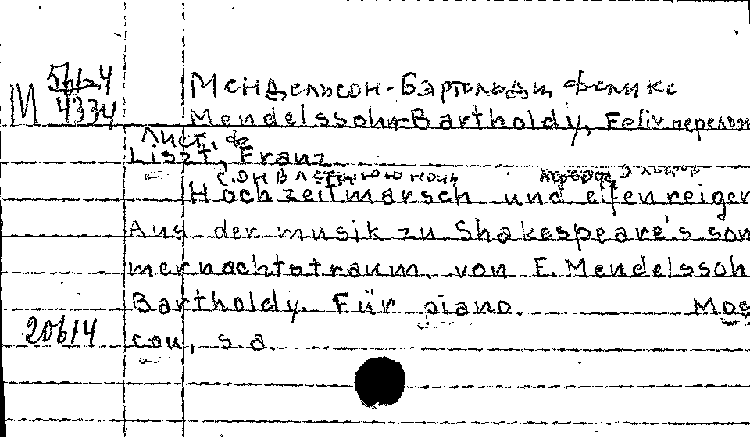 М 56124
4334
Мендельсон-Бартольди Феликс
Mendelssohn-Bartholdy, Felix перелож
Лист, Ф
Liszt, Franz
Сон в летнюю ночь
Hochzeitmarsch und elfenreigen
Aus der musik zu Shakespeare's som
mernachtstraum von F. Mendelssoh
Bartholdy. Für piano. Mos
20614
cou, s.a.